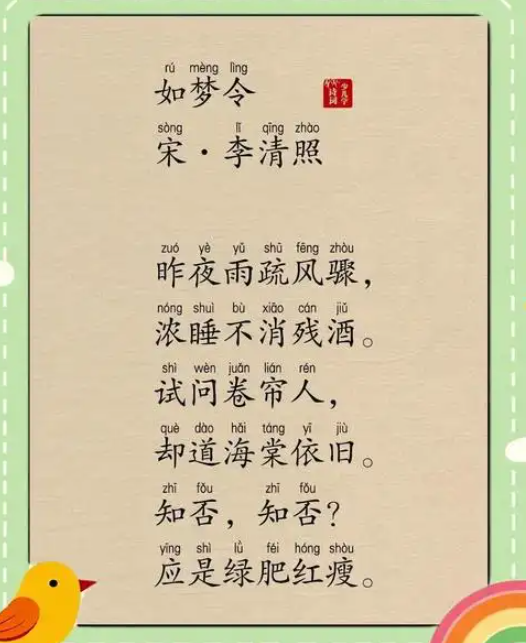 rú mèng lìng
如梦令
少儿学诗词
sòng lǐ qīng zhào
宋·李清照
zuó yè yǔ shū fēng zhòu
昨夜雨疏风骤，
nóng shuì bù xiāo cán jiǔ
浓睡不消残酒。
shì wèn juǎn lián rén
试问卷帘人，
què dào hǎi táng yī jiù
却道海棠依旧。
zhī fǒu zhī fǒu
知否，知否？
yīng shì lǜ féi hóng shòu
应是绿肥红瘦。